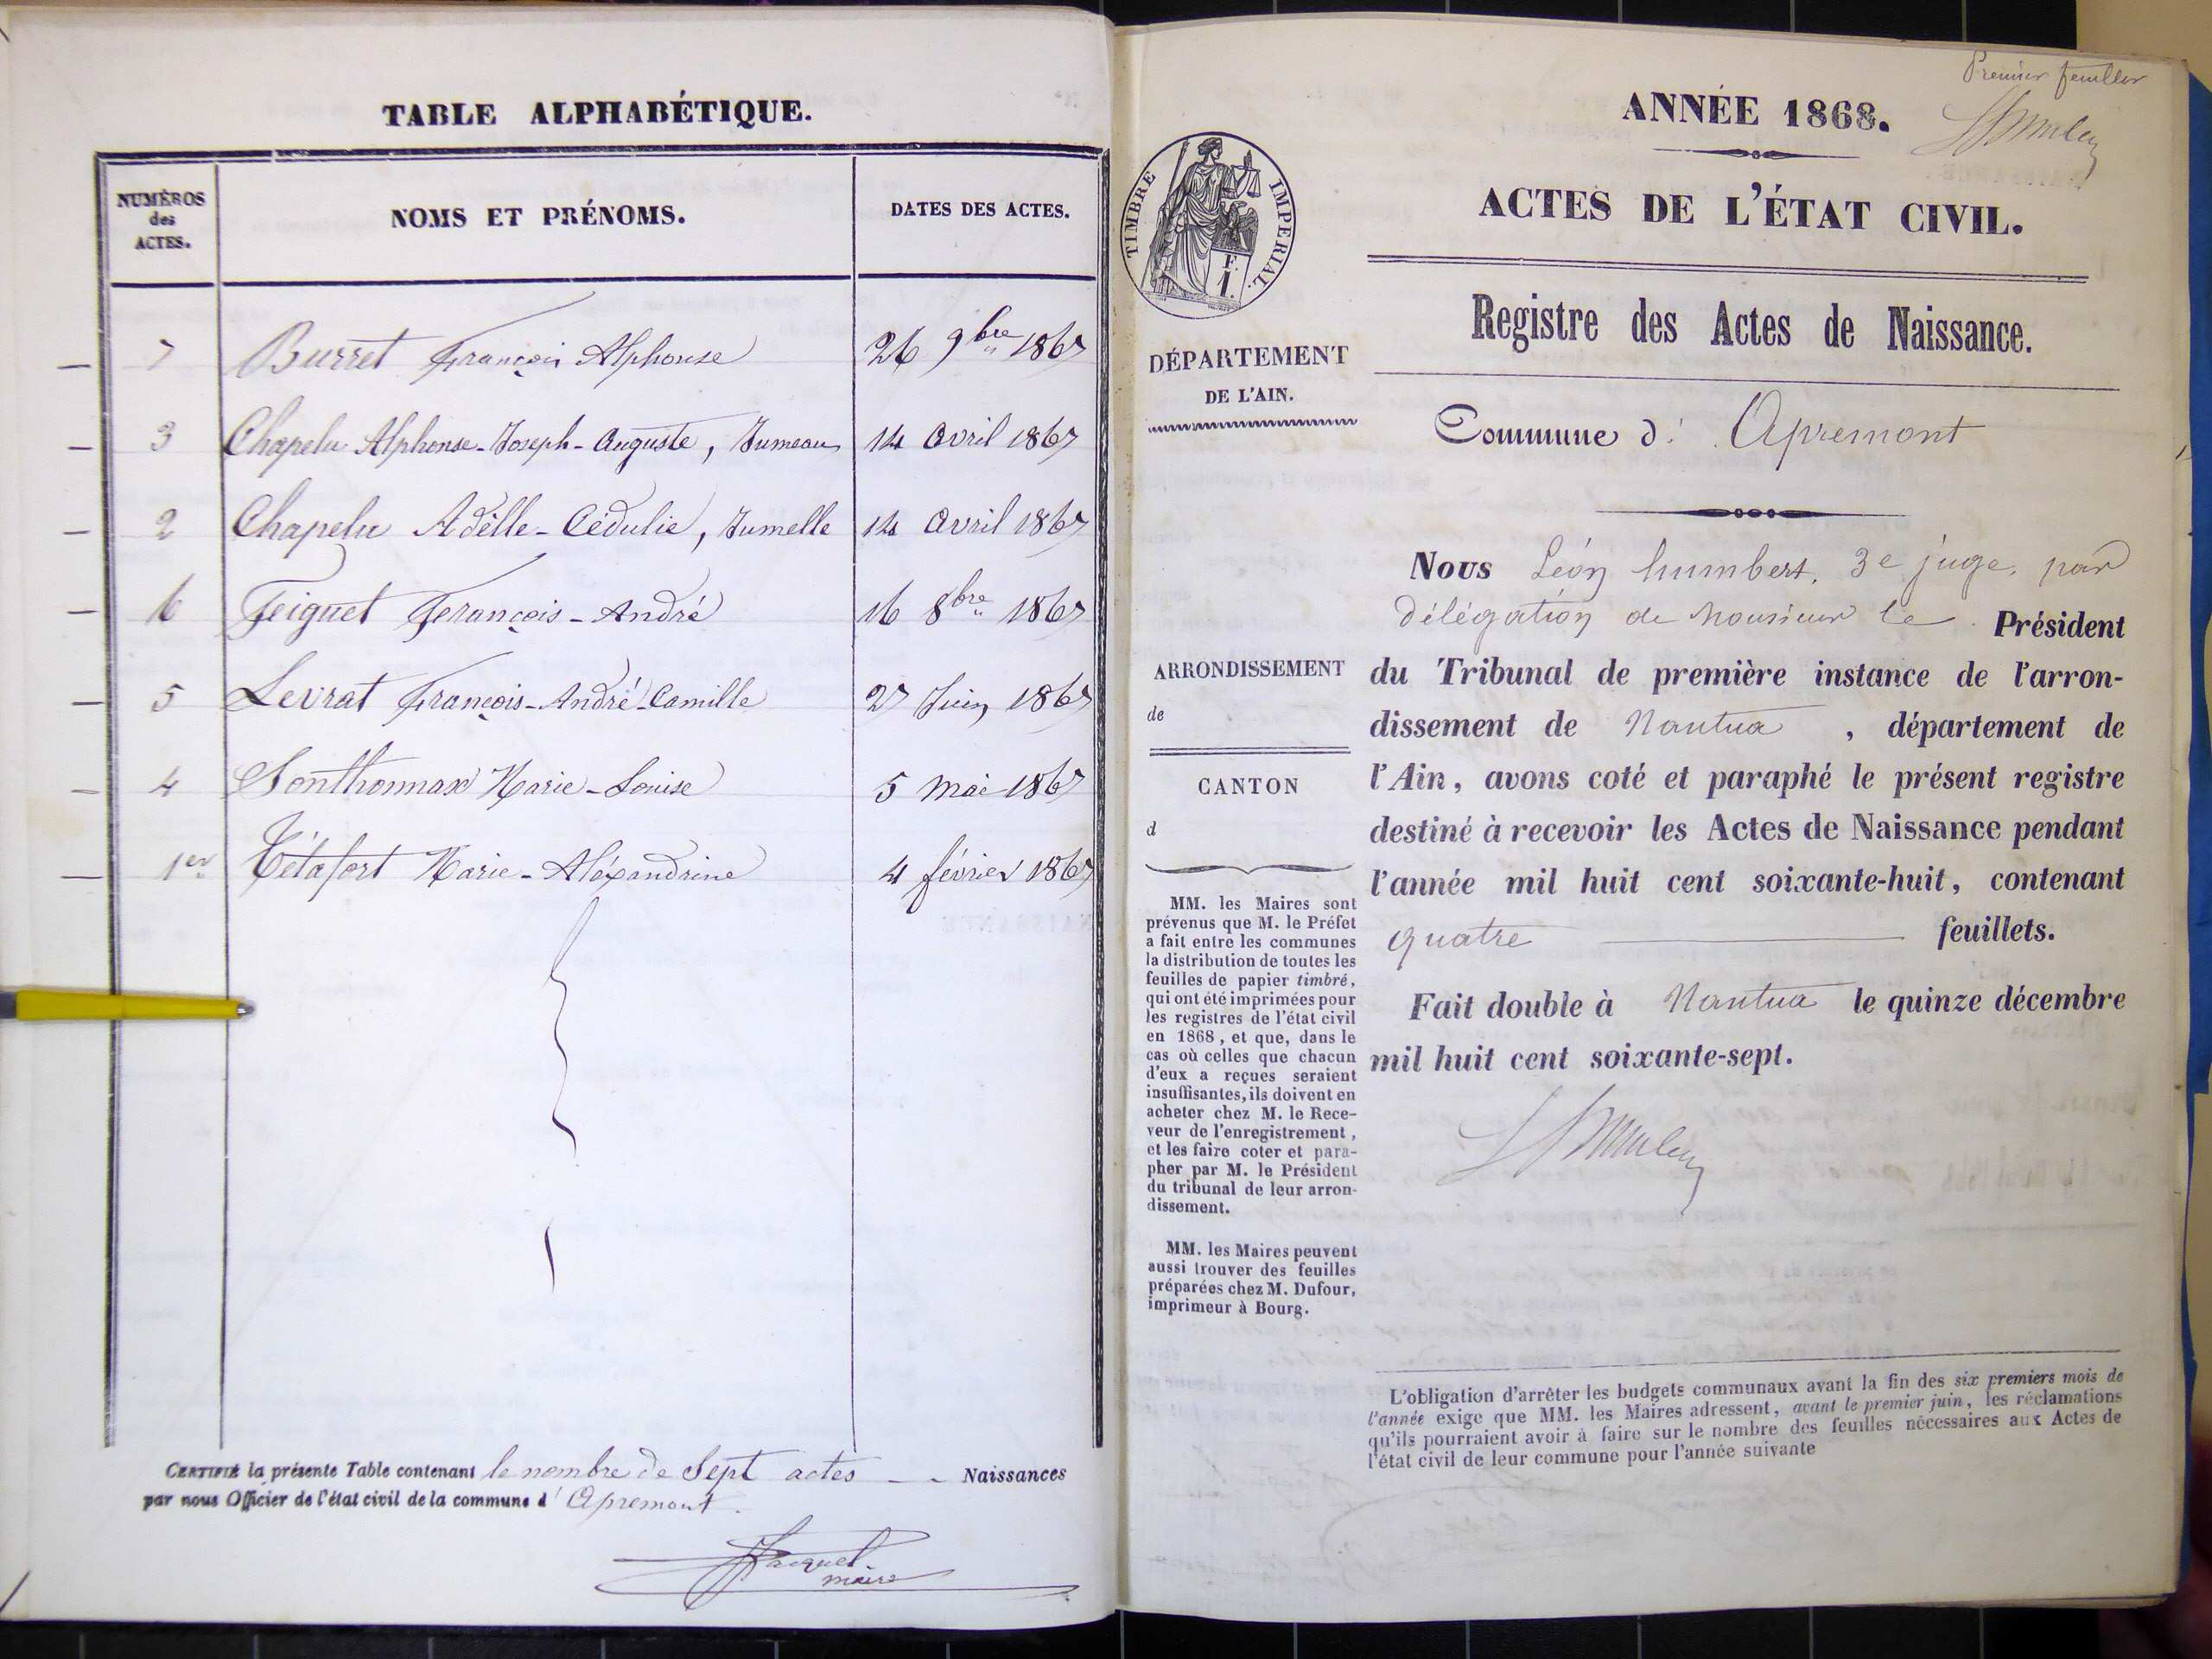 TABLE ALPHABÉTIQUE.
NUMÉROS
des
ACTES.
NOMS ET PRÉNOMS.
DATES DES ACTES.
7 Burret François Alphonse 26 9bre 1867
3 Chapelu Alphonse-Joseph-Auguste, Jumeau 14 Avril 1867
2 Chapelu Adèlle-Cédulie, Jumelle 14 Avril 1867
6 Feiguet François-André 16 8bre 1867
5 Levrat François-André-Camille 27 Juin 1867
4 Sonthonnax Marie-Louise 5 Mai 1867
1er Tétafort Marie-Aléxandrine 4 février 1867
CERTIFIÉ la présente Table contenant le nombre de Sept actes Naissances
par nous Officier de l'état civil de la commune d' Apremont.
Jacquet
maire
Premier feuillet
ANNÉE 1868.
ACTES DE L'ÉTAT CIVIL.
TIMBRE IMPÉRIAL.
F.
1.
Registre des Actes de Naissance.
DÉPARTEMENT
DE L'AIN.
Commune d' Apremont
Nous Léon humbert, 3e juge, par
délégation de Monsieur le Président
ARRONDISSEMENT
de
du Tribunal de première instance de l'arron-
dissement de Nantua , département de
CANTON
d
l'Ain, avons coté et paraphé le présent registre
destiné à recevoir les Actes de Naissance pendant
l'année mil huit cent soixante-huit, contenant
quatre feuillets.
Fait double à Nantua le quinze décembre
mil huit cent soixante-sept.
MM. les Maires sont
prévenus que M. le Préfet
a fait entre les communes
la distribution de toutes les
feuilles de papier timbré,
qui ont été imprimées pour
les registres de l'état civil
en 1868, et que, dans le
cas où celles que chacun
d'eux a reçues seraient
insuffisantes, ils doivent en
acheter chez M. le Rece-
veur de l'enregistrement,
et les faire coter et para-
pher par M. le Président
du tribunal de leur arron-
dissement.
MM. les Maires peuvent
aussi trouver des feuilles
préparées chez M. Dufour,
imprimeur à Bourg.
L'obligation d'arrêter les budgets communaux avant la fin des six premiers mois de
l'année exige que MM. les Maires adressent, avant le premier juin, les réclamations
qu'ils pourraient avoir à faire sur le nombre des feuilles nécessaires aux Actes de
l'état civil de leur commune pour l'année suivante